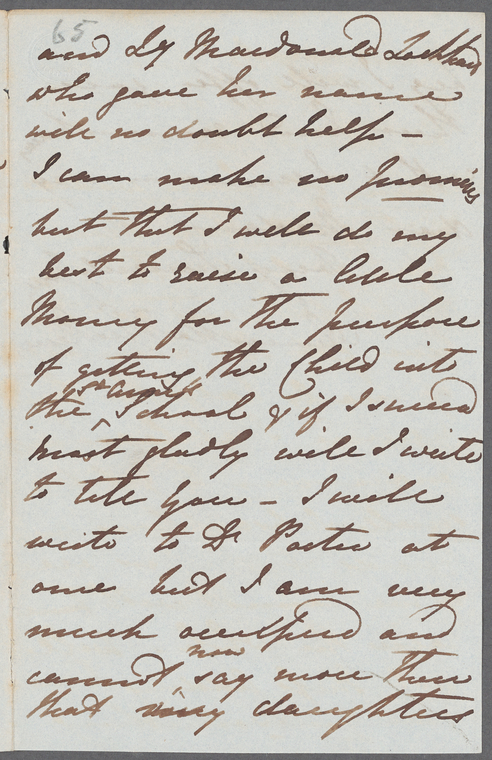 65
and Ly Macdonald Lockhart
who gave her name
will no doubt help –
I can make no promises
but that I will do my
best to raise a little
Money for the purpose
of getting the Child into
the School & if I succeed
most gladly will I write
to tell you – I will
write to Dr at
once but I am very
much occupied and
now
cannot say more than
that my daughters